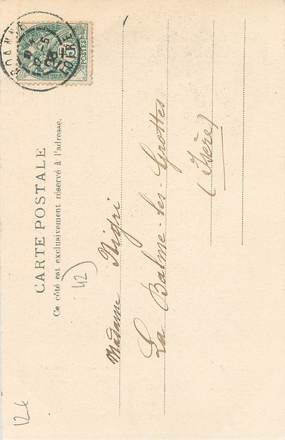 CARTE POSTALE
Ce côté est exclusivement réservé à l'adresse.
ROANNE
LOIRE
Madame Nigri
La Balme-les-Grottes
(Isère)
42)
12€